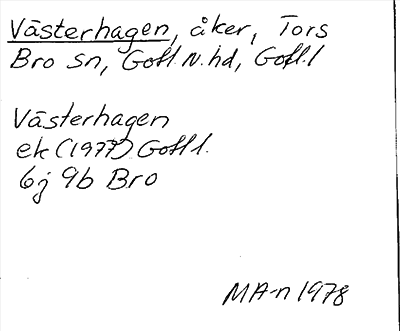 Västerhagen, åker, Tors
Bro sn, Gotl. N. hd, Gotl. l
Västerhagen
ek (1977) Gotl l.
6j 9b Bro
MA-n 1978